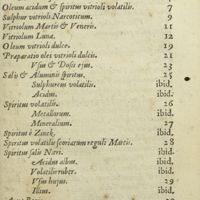 Oleum acidum & spiritus vitrioli volatilis. 7
Sulphur vitrioli Narcoticum. 9
Vitriolum Martis & Veneris. 11
Vitriolum Lunæ. 12
Oleum vitrioli dulce. 19
Præparatio olei vitrioli dulcis. 21
Vsus & Dosis ejus. 23
Salis & Aluminis spiritus. 25
Sulphureum volatilis. ibid.
Acidum. ibid.
Spiritus volatilis. 26
Metallorum. ibid.
Mineralium. 27
Spiritus è Zinck. ibid.
Spiritus volatilis scoriarum reguli Martis. 28
Spiritus salis Nitri. ibid.
Acidus albus. ibid.
Volatilis ruber. ibid.
Vsus hujus. 29
Illius. ibid.